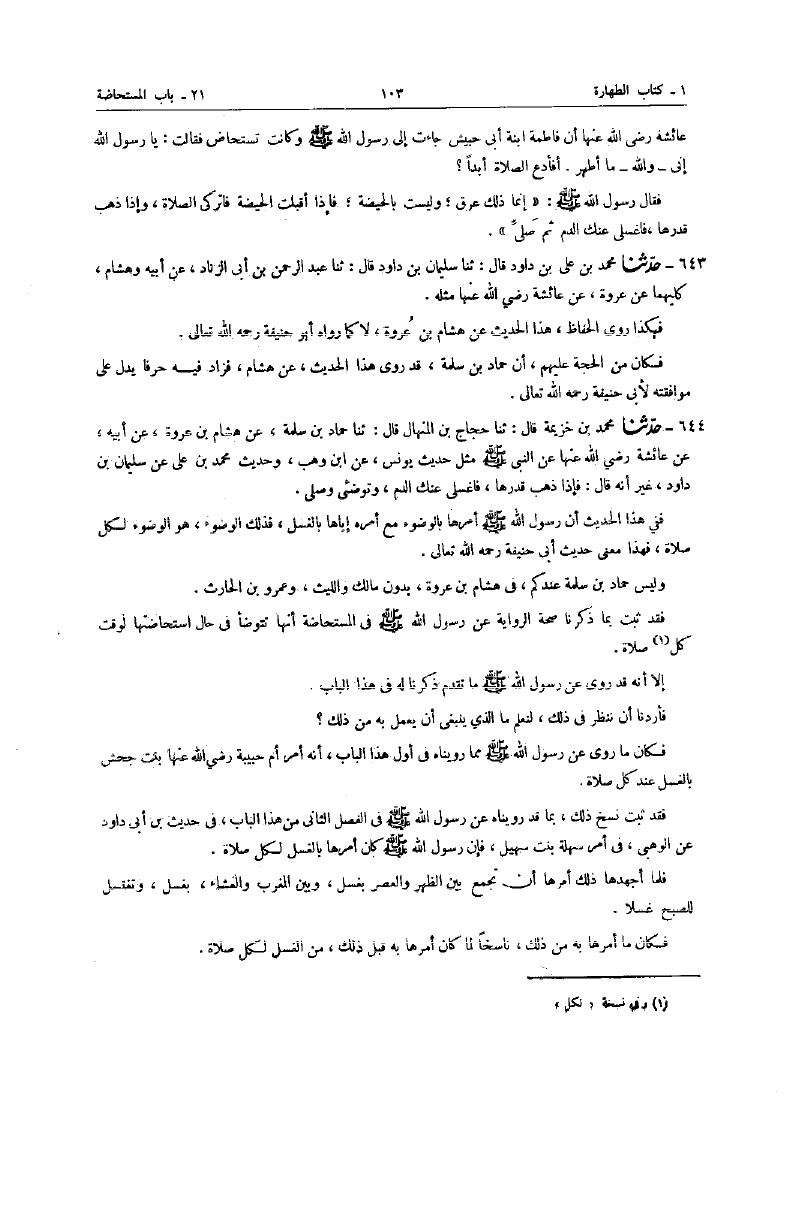 ١ ـ كتاب الطهارة ١٠٣ ٢١ ـ باب المستحاضة
عائشة رضى الله عنها أن فاطمة ابنة أبى حبيش جاءت إلى رسول الله ﷺ وكانت تستحاض فقالت : يا رسول الله
إنى ـ والله ـ ما أطهر . أفأدع الصلاة أبداً ؟
فقال رسول الله ﷺ : « إنما ذلك عرق ؛ وليست بالحيضة ؛ فإذا أقبلت الحيضة فاتركى الصلاة ، وإذا ذهب
قدرها ،فاغسلى عنك الدم ثم صَلىِّ » .
٦٤٣ ـ حدّثنا محمد بن على بن داود قال : ثنا سليمان بن داود قال : ثنا عبد الرحمن بن أبى الزناد ، عن أبيه وهشام ،
كليهما عن عروة ، عن عائشة رضي الله عنها مثله .
فهكذا روى الحفاظ ، هذا الحديث عن هشام بن عُروة ، لا كما رواه أبو حنيفة رحمه الله تعالى .
فكان من الحجة عليهم ، أن حماد بن سلمة ، قد روى هذا الحديث ، عن هشام ، فزاد فيه حرفا يدل على
موافقته لأبى حنيفة رحمه الله تعالى .
٦٤٤ ـ حدّثنا محمد بن خزيمة قال : ثنا حجاج بن المنهال قال : ثنا حماد بن سلمة ، عن هشام بن عروة ، عن أبيه ،
عن عائشة رضي الله عنها عن النبى ﷺ مثل حديث يونس ، عن ابن وهب ، وحديث محمد بن على عن سليمان بن
داود ، غير أنه قال : فإذا ذهب قدرها ، فاغسلى عنك الدم ، وتوضئى وصلى .
ففي هذا الحديث أن رسول الله ﷺ أمرها بالوضوء مع أمره إياها بالغسل ، فذلك الوضوء ، هو الوضوء لكل
صلاة ، فهذا معنى حديث أبى حنيفة رحمه الله تعالى .
وليس حماد بن سلمة عندكم ، فى هشام بن عروة ، بدون مالك والليث ، وعمرو بن الحارث .
فقد ثبت بما ذكرنا صحة الرواية عن رسول الله ﷺ فى المستحاضة أنها تتوضأ فى حال استحاضتها لوقت
كل(١) صلاة .
إلا أنه قد روى عن رسول الله ﷺ ما تقدم ذكرنا له فى هذا الباب .
فأردنا أن ننظر فى ذلك ، لنعلم ما الذي ينبغى أن يعمل به من ذلك ؟
فكان ما روى عن رسول الله ﷺ مما رويناه فى أول هذا الباب ، أنه أمر أم حبيبة رضي الله عنها بنت جحش
بالغسل عند كل صلاة .
فقد ثبت نسخ ذلك ، بما قد رويناه عن رسول الله ﷺ فى الفصل الثانى من هذا الباب ، فى حديث بن أبى داود
عن الوهبى ، فى أمر سهلة بنت سهيل ، فإن رسول الله ﷺ كان أمرها بالغسل لكل صلاة .
فلما أجهدها ذلك أمرها أن تجمع بين الظهر والعصر بغسل ، وبين المغرب والعشاء ، بغسل ، وتغتسل
للصبح غسلا .
فكان ما أمرها به من ذلك ، ناسخاً لما كان أمرها به قبل ذلك ، من الغسل لكل صلاة .
(١) وفى نسخة « لكل »